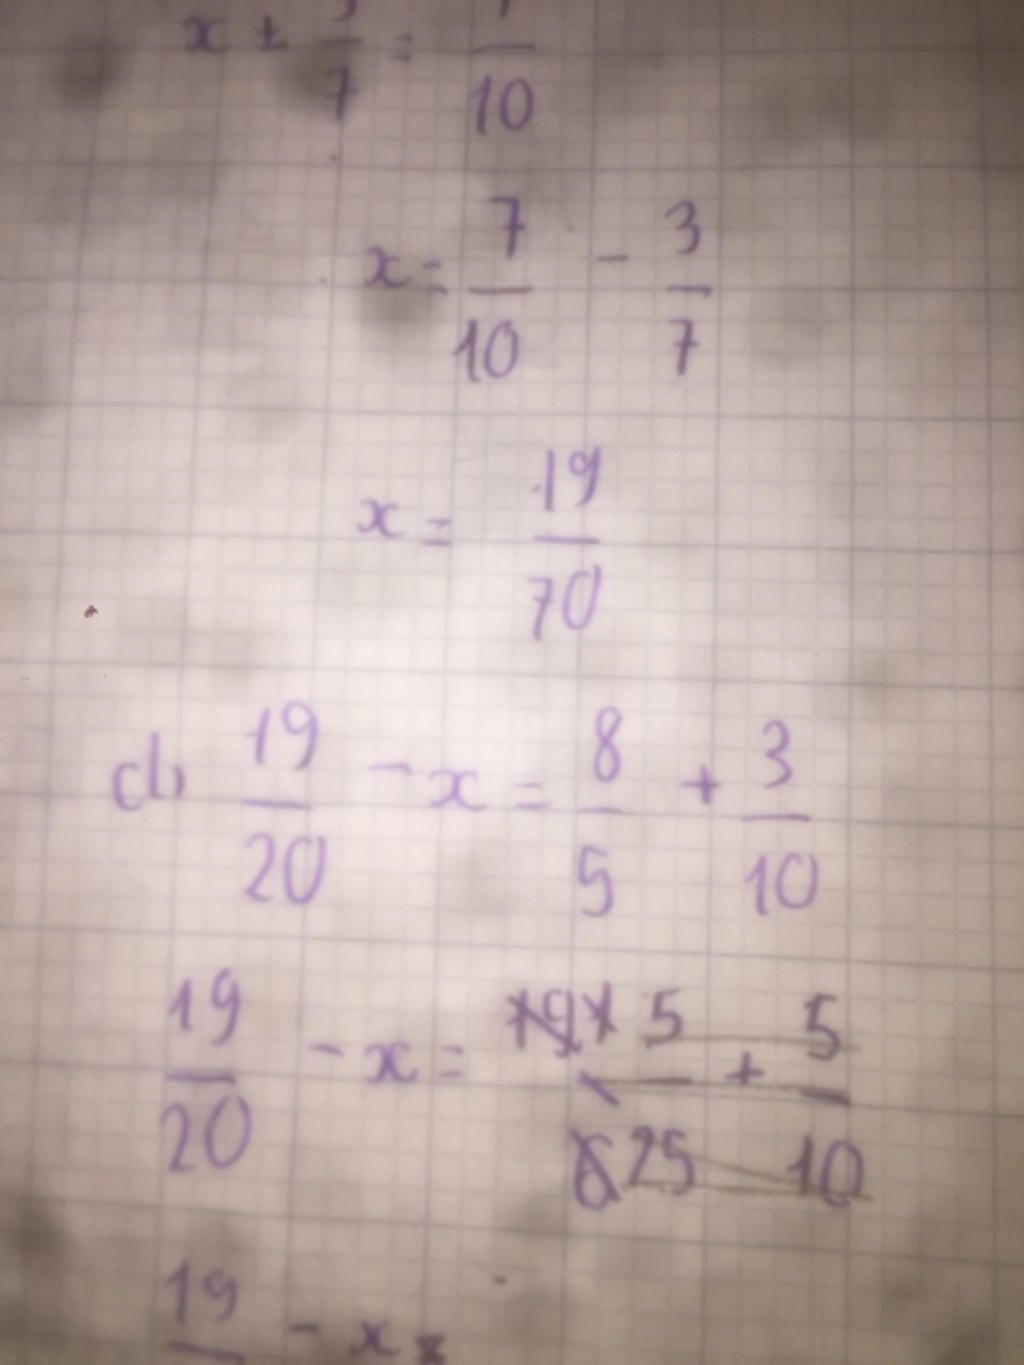 x + 3/7 = 7/10
x = 7/10 - 3/7
x = 19/70
d) 19/20 - x = 8/5 + 3/10
19/20 - x = 5/25 + 5/10
19 - x =